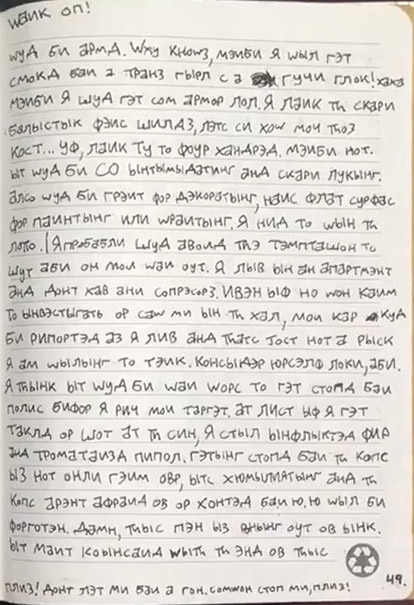 WALK ON!
ШУД БИ АРМД. WХУ КНОWЗ, МЭЙБИ Я WЫЛ ГЭТ
СМОКД БАЙ А ТРАНЗ ГЫРЛ С А ГУЧИ ГЛОК! ХАХА
МЭЙБИ Я ШУД ГЭТ СОМ АРМОР ЛОЛ. Я ЛАИК ТН СКАРИ
БАЛЫСТЫК ФЭЙС ШИЛДЗ, ЛЭТС СИ ХОW МОЧ ТНОЗ
КОСТ... УФ, ЛАИК ТУ ТО ФОУР ХАНДРЭД. МЭЙБИ НОТ.
ЫТ WУД БИ СО ЫНТЫМЫДАТИНГ АНД СКАРИ ЛУКЫНГ.
АЛСО WУД БИ ГРЭЙТ ФОР ДЭКОРАТЫНГ, НАИС ФЛАТ СУРФАС
ФОР ПАИНТЫНГ ИЛИ WРАИТЫНГ. Я НИД ТО WЫН ТН
ЛОТО. Я ПРОБАБЛИ ШУД АВОИД ТНЭ ТЭМПТАШОН ТО
ШУТ АБИ ОН МОИ WАИ ОУТ. Я ЛЫВ ЫН АН АПАРТМЭНТ
АНД ДОНТ ХАВ АНИ СОПРЭСОРЗ. ИВЭН ЫФ НО WОН КАИМ
ТО ЫНВЭСТЫГАТЬ ОР САW МИ ЫН ТН ХАЛ, МОИ КАР КУД
БИ РИПОРТЭД АЗ Я ЛИВ АНД ТНАТС ЈОСТ НОТ А РЫСК
Я АМ WЫЛЫНГ ТО ТЭИК. КОНСЫДЭР ЮРСЭЛФ ЛОКИ, АБИ.
Я ТНЫНК ЫТ WУД БИ WАИ WОРС ТО ГЭТ СТОПД БАИ
ПОЛИС БИФОР Я РИЧ МОИ ТАРГЭТ. АТ ЛИСТ ЫФ Я ГЭТ
ТАКЛД ОР ШОТ АТ ТН СИН, Я СТЫЛ ЫНФЛЫКТЭД ФИР
АНД ТРОМАТАИЗД ПИПОЛ. ГЭТЫНГ СТОПД БАИ ТН КОПС
ЫЗ НОТ ОНЛИ ГЭИМ ОВР, ЫТС ХЮМЫЛИАТЫНГ АНД ТН
КОПС АРЭНТ АФРАИД ОВ ОР ХОНТЭД БАИ Ю. Ю WЫЛ БИ
ФОРГОТЭН. ДАМН, ТНЫС ПЭН ЫЗ ОУТ ОВ ЫНК.
ЫТ МАИТ КОЫНСАИД WЫТН ТН ЭНД ОВ ТНЫС
ПЛИЗ! ДОНТ ЛЭТ МИ БАИ А ГОН. СОМWОН СТОП МИ, ПЛИЗ!
49.